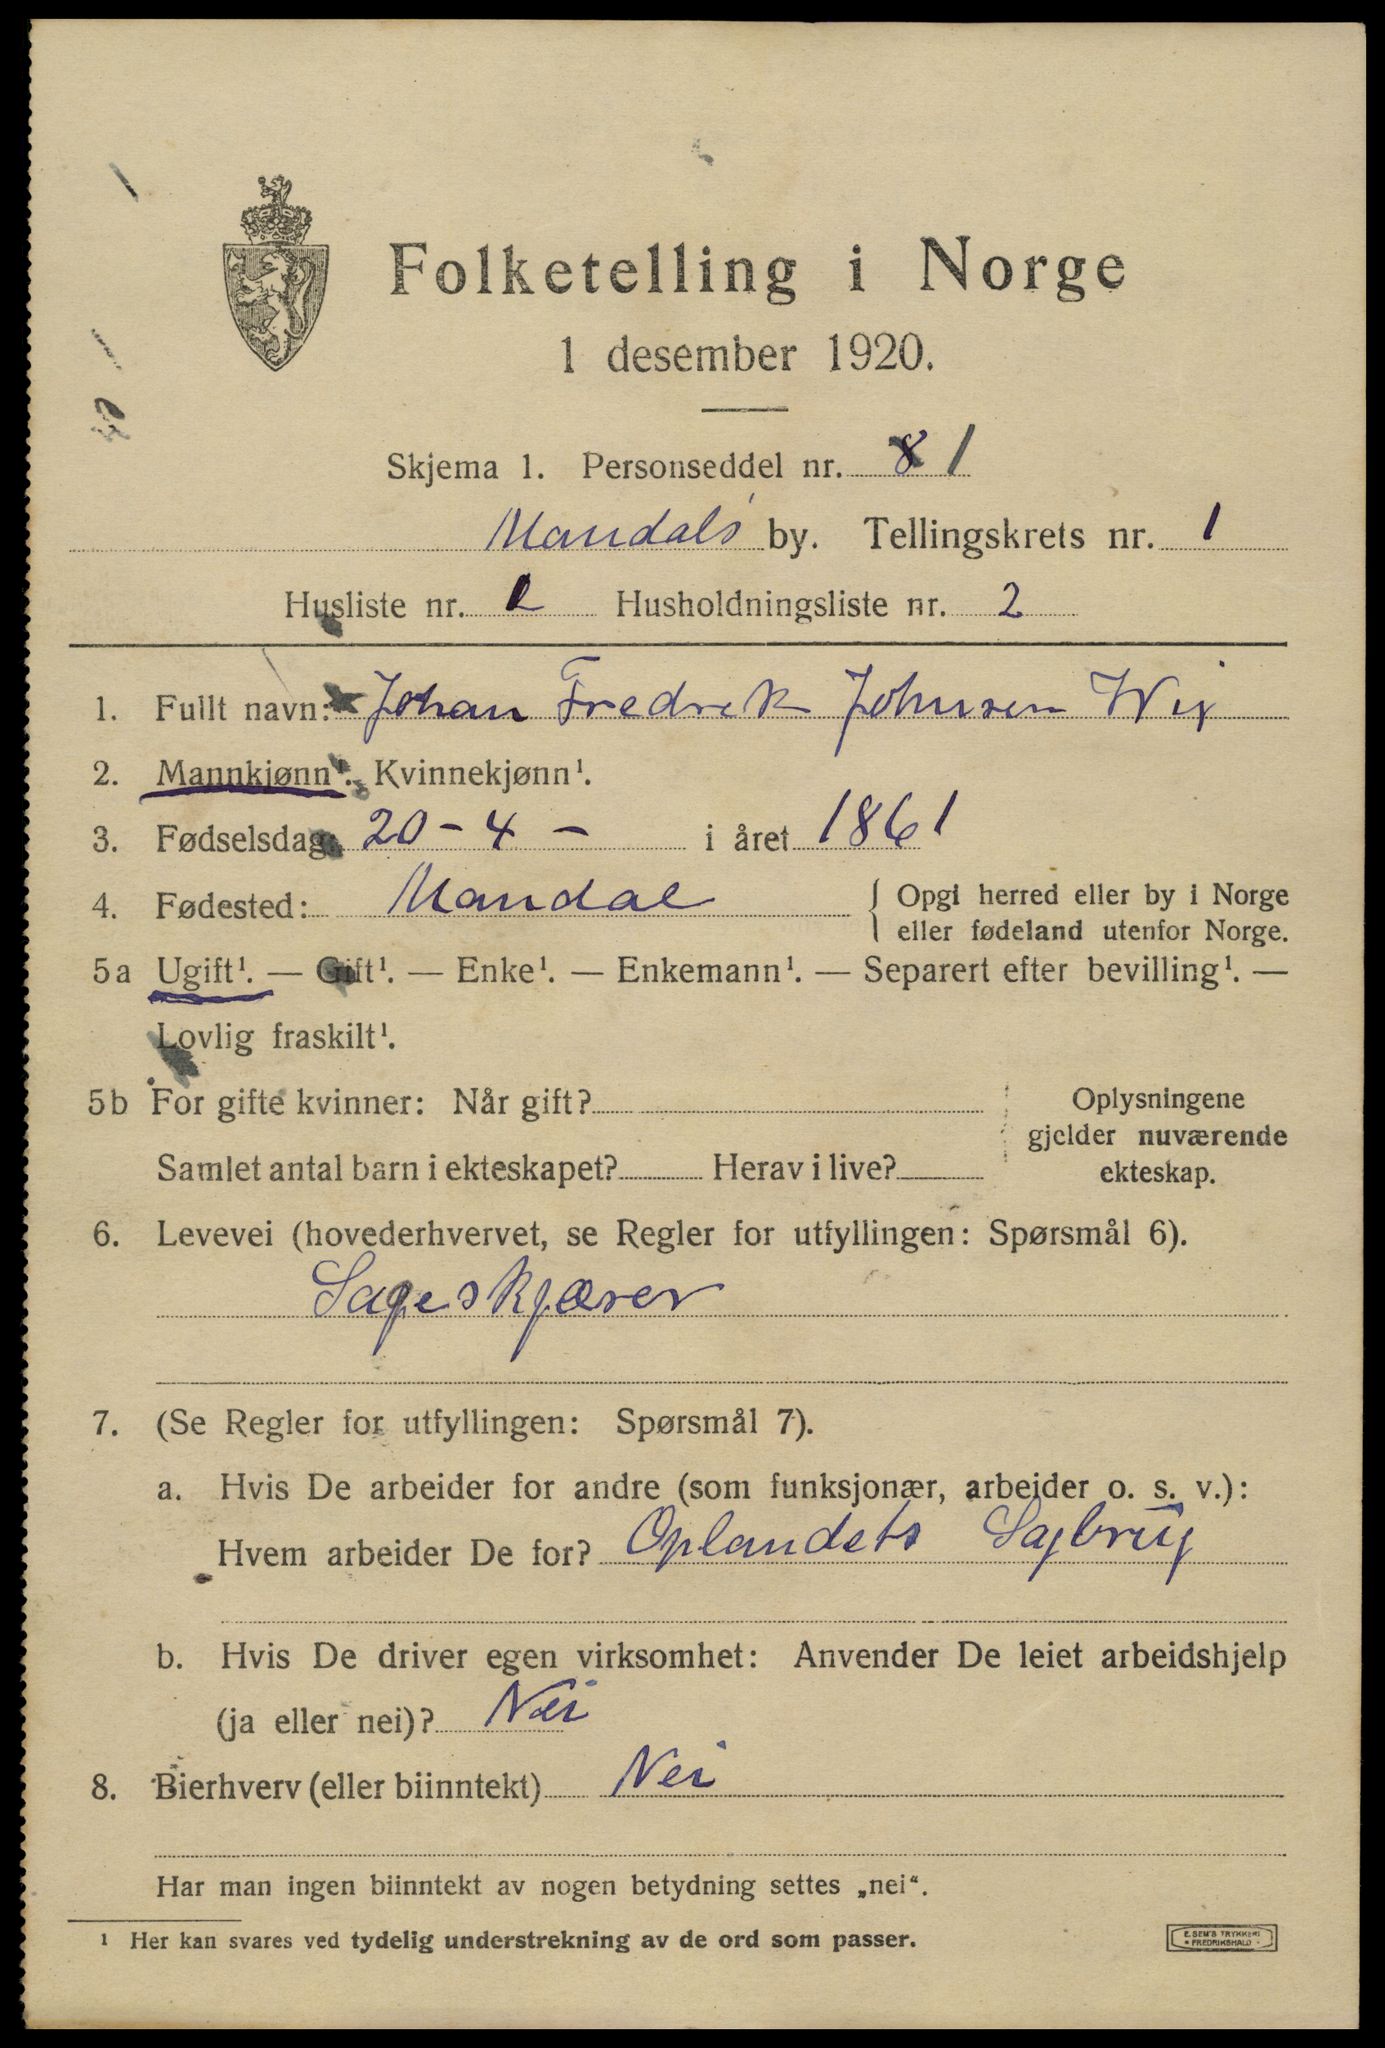 Folketelling i Norge
1 desember 1920.
Skjema 1. Personseddel nr. 8 1
Mandals by. Tellingskrets nr. 1
Husliste nr. Husholdningsliste nr. 2
1. Fullt navn: Johan Fredrek Johnsen Wig
2. Mannkjønn¹. Kvinnekjønn¹.
3. Fødselsdag: 20 - 4 - i året 1861
4. Fødested: Mandal { Opgi herred eller by i Norge
eller fødeland utenfor Norge.
5a Ugift¹. — Gift¹. — Enke¹. — Enkemann¹. — Separert efter bevilling¹. —
Lovlig fraskilt¹.
5b For gifte kvinner: Når gift? Oplysningene
gjelder nuværende
Samlet antal barn i ekteskapet? Herav i live? ekteskap.
6. Levevei (hovederhvervet, se Regler for utfyllingen: Spørsmål 6).
Sageskjærer
7. (Se Regler for utfyllingen: Spørsmål 7).
a. Hvis De arbeider for andre (som funksjonær, arbeider o. s. v.):
Hvem arbeider De for? Oplandets Sagbrug
b. Hvis De driver egen virksomhet: Anvender De leiet arbeidshjelp
(ja eller nei)? Nei
8. Bierhverv (eller biinntekt) Nei
Har man ingen biinntekt av nogen betydning settes „nei“.
¹ Her kan svares ved tydelig understrekning av de ord som passer.
E. SEM'S TRYKKERI
FREDRIKSHALD